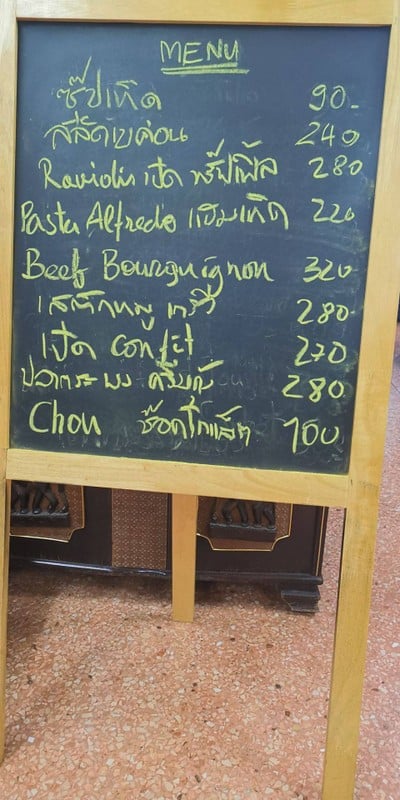 MENU
ซุปเห็ด 90.-
สลัดเบค่อน 240
Raviolis เป็ด ทรัฟเฟิล 280
Pasta Alfredo แฮมเห็ด 220
Beef Bourguignon 320
เสต๊กหมู 280
เป็ด confit 270
ปลากระพง ครีม 280
Chou ช๊อคโกแล๊ต 100